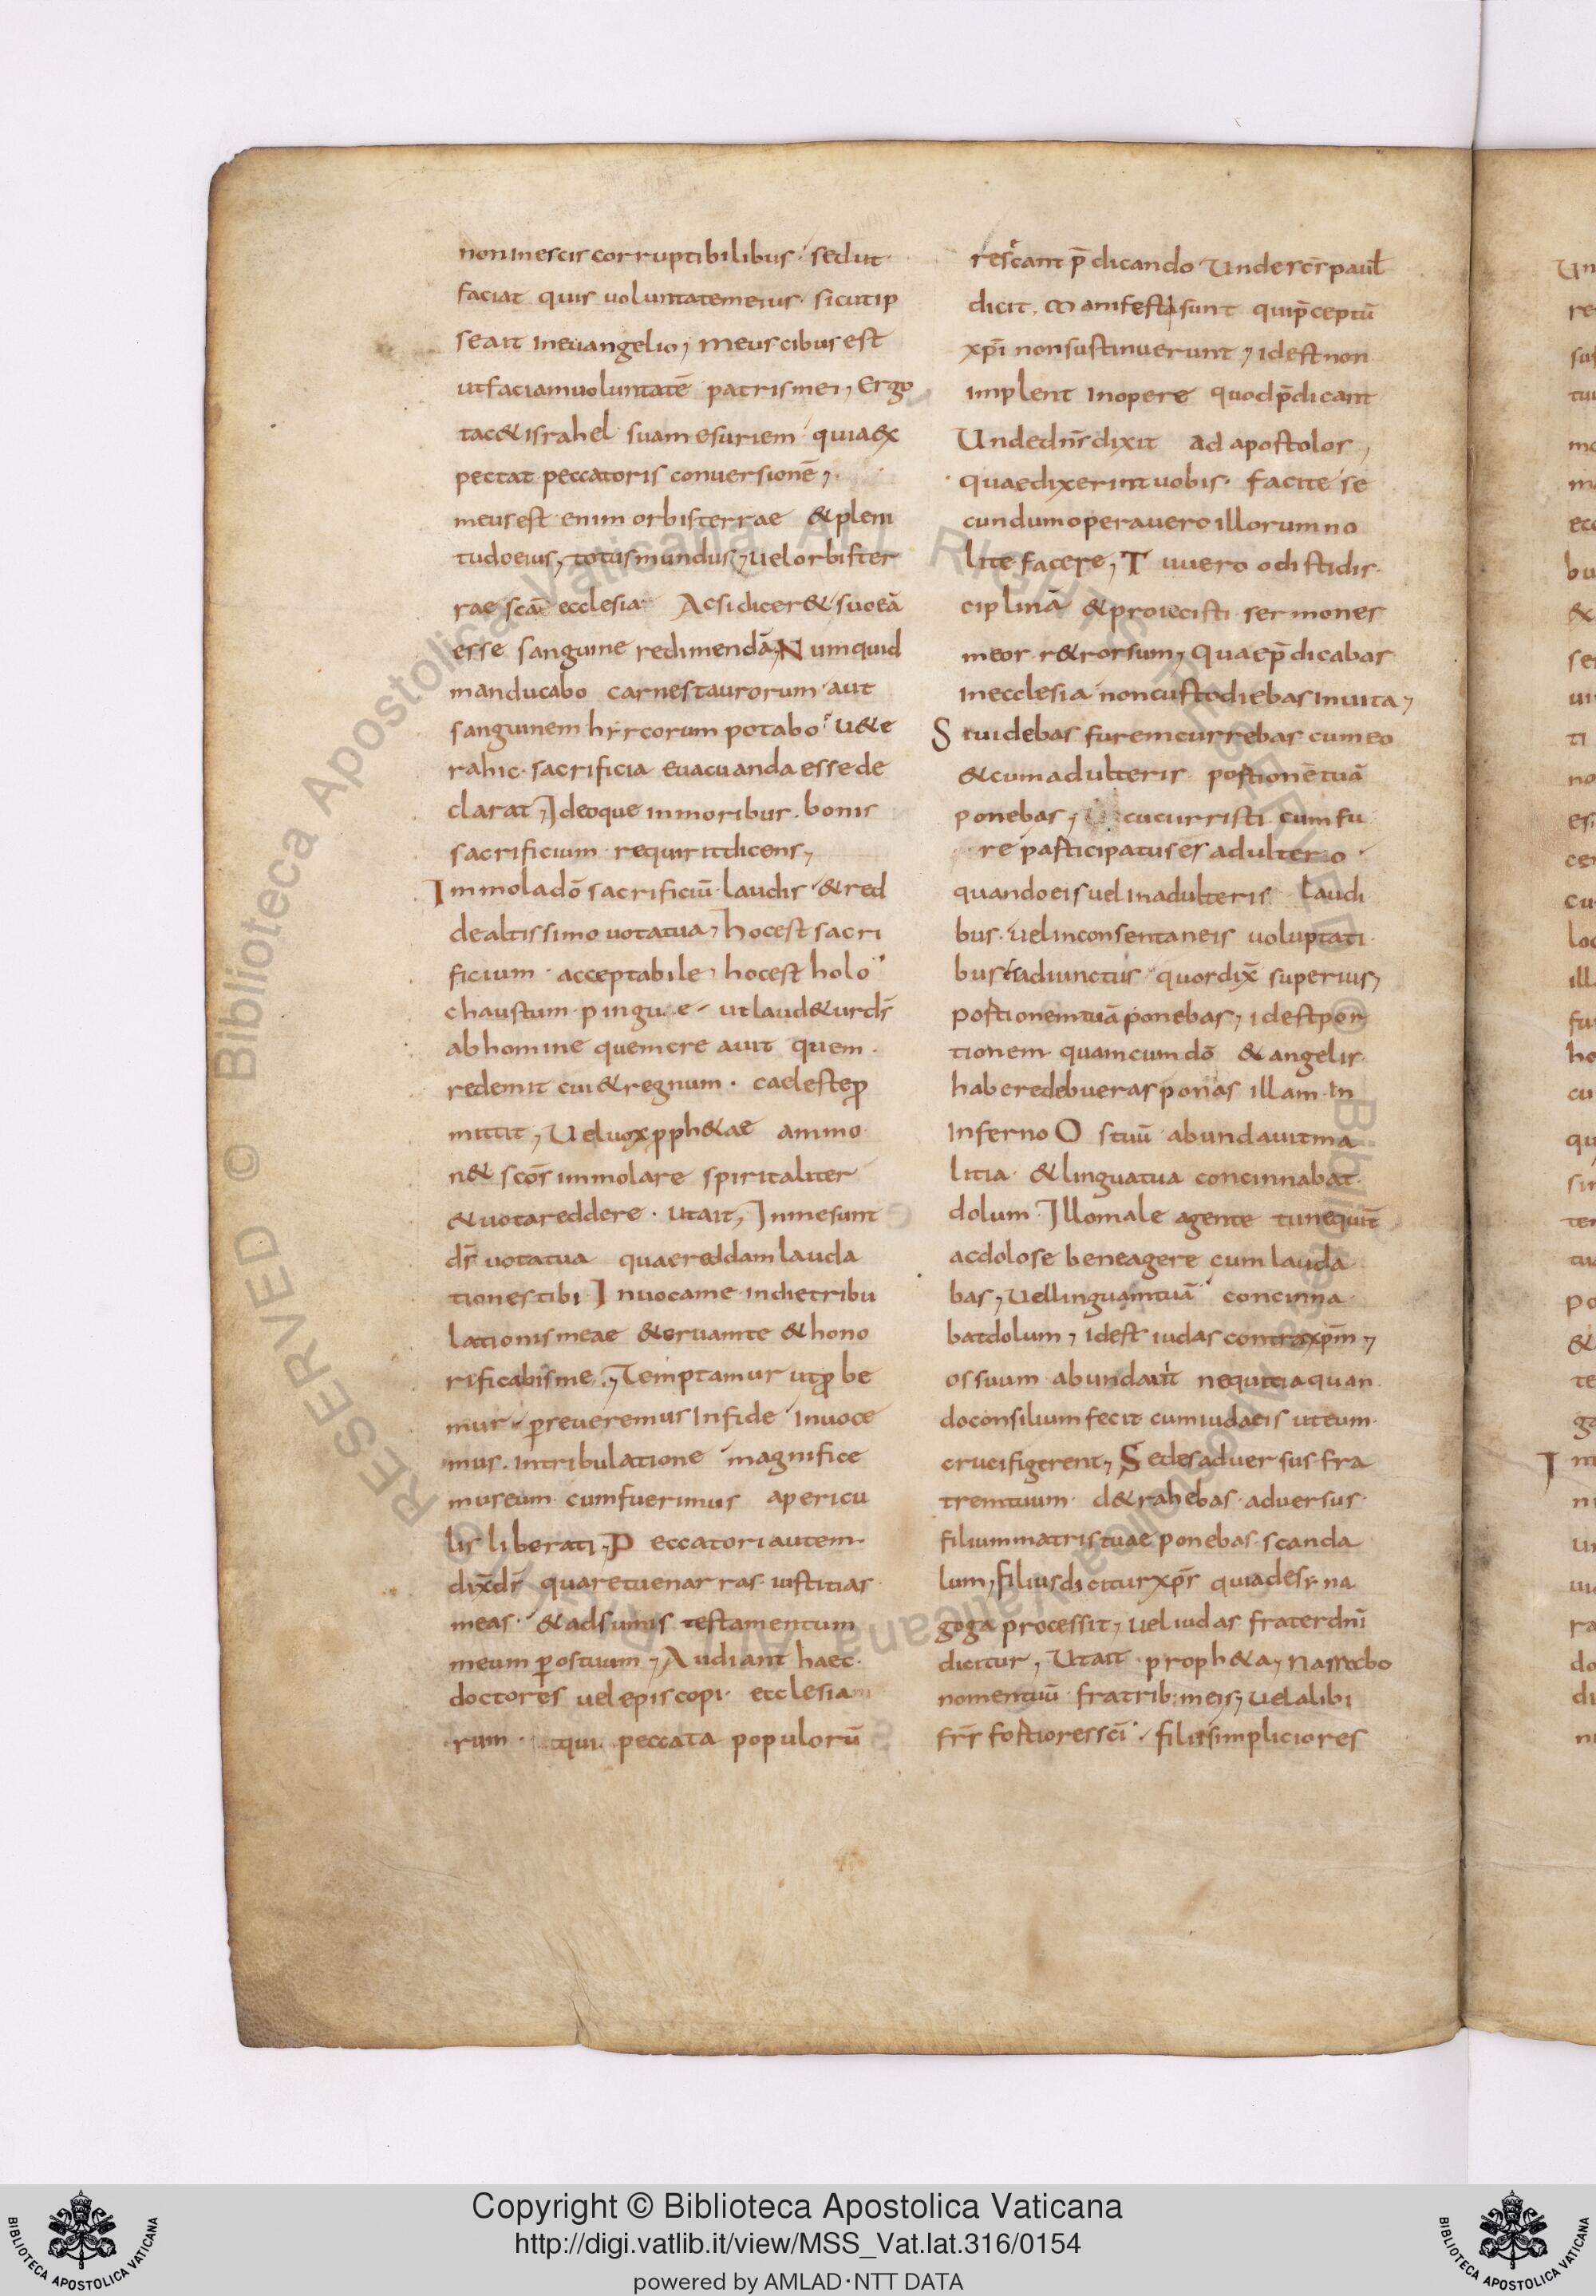 non in escis corruptibilibus · sed ut
faciat quis uoluntatem eius · sicut ip
se ait in euangelio ; meus cibus est
ut faciam uoluntatē patris mei , Ergo
tac& israhel suam esuriem quia ex
pectat peccatoris conuersionē ,
meus est enim orbis terrae & pleni
tudo eius , totus mundus , uel orbis ter
rae scā ecclesia · Ac si dicer& suo eā
esse sanguine redimendā , Numquid
manducabo carnes taurorum aut
sanguinem hyrcorum potabo u&e
ra hic · sacrificia euacuanda esse de
clarat , Ideoque in moribus · bonis
sacrificium requirit dicens ,
Immola dō sacrificiū laudis & red
de altissimo uota tua , hoc est sacri
ficium · acceptabile , hoc est holo
chaustum · pingue ut laud&ur ds̄
ab homine quem creauit quem ·
redemit cui & regnum · caeleste p
mittit , Vel uox pph&ae ammo
n& scōs immolare spiritaliter
& uota reddere · ut ait , In me sunt
ds̄ uota tua quae reddam lauda
tiones tibi · Inuoca me · in die tribu
lationis meae & eruam te & hono
rificabis me , Temptamur ut p be
mur perseueremus in fide inuoce
mus · in tribulatione magnifice
mus eum cum fuerimus a pericu
lis liberati , Peccatori autem
dix̄ ds̄ quare tu enarras iustitias
meas · & adsumis testamentum
meum p os tuum , Audiant haec ·
doctores uel episcopi · ecclesia
rum · qui peccata populorū
rescant p̄dicando Unde scs̄ paul
dicit · manifesta sunt qui p̄ceptū
xpī non sustinuerunt , id est non
implent in opere quod p̄dicant
Unde dns̄ dixit ad apostolos ,
quae dixerint uobis · facite se
cundum opera uero illorum no
lite facere , Tu uero odisti dis
ciplinā & proiecisti sermones
meos r&rorsum , Quae p̄dicabas
in ecclesia non custodiebas in uita ,
Si uidebas furem currebas cum eo
& cum adulteris portionē tuā
ponebas , cucurristi cum fu
re participatus es adulterio
quando eis uel in adulteris laudi
bus · uel in consentaneis uoluptati
bus es adiunctus quos dix̄ superius ,
portionem tuā ponebas , id est por
tionem quam cum dō & angelis
habere debueras ponas illam in
inferno Os tuū abundauit ma
litia · & lingua tua concinnabat
dolum · Illo male agente tu nequit̄
ac dolose bene agere cum lauda
bas , Vel linguam tuā concinna
bat dolum , id est iudas contra xpm̄ ,
os suum abundauit nequitia quan
do consilium fecit cum iudaeis ut eum
crucifigerent , Sedes aduersus fra
trem tuum · d&rahebas · aduersus ·
filium matris tuae ponebas · scanda
lum , filius dicitur xps̄ quia de syna
goga processit , uel iudas frater dnī
dicitur , Ut ait · proph&a , narrabo
nomen tuū fratrib: meis , uel alibi
frs̄ fortiores scī · filii simpliciores
Copyright © Biblioteca Apostolica Vaticana
http://digi.vatlib.it/view/MSS_Vat.lat.316/0154
powered by AMLAD·NTT DATA
BIBLIOTECA APOSTOLICA VATICANA
BIBLIOTECA APOSTOLICA VATICANA